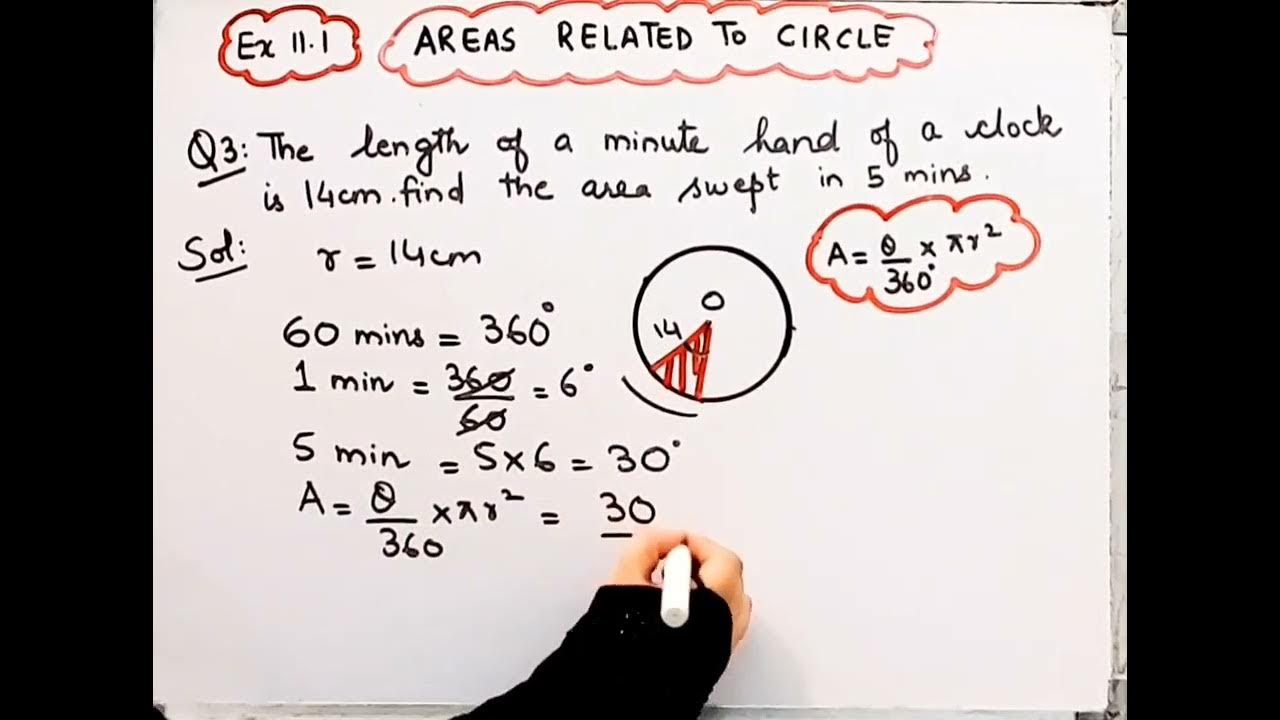 Ex 11.1 AREAS RELATED TO CIRCLE
Q3: The length of a minute hand of a clock
is 14cm. find the area swept in 5 mins.
Sol: r = 14cm
A = θ/360° × πr²
O
14
60 mins = 360°
1 min = 360/60 = 6°
5 min = 5×6 = 30°
A = θ/360 × πr² = 30